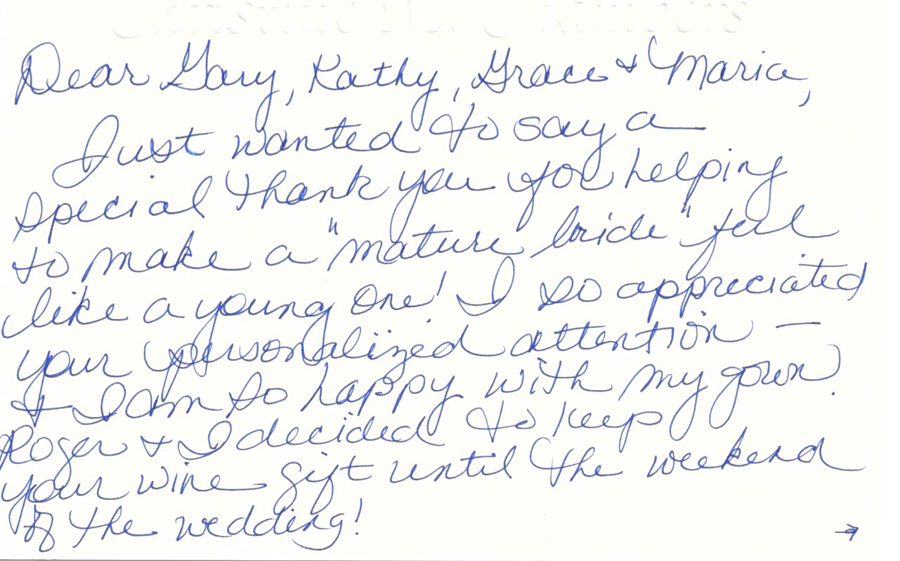 Dear Gary, Kathy, Grace + Maria,
Just wanted to say a
special thank you for helping
to make a "mature bride" feel
like a young one! I so appreciated
your personalized attention —
+ I am so happy with my gown.
Roger + I decided to keep
your wine gift until the weekend
of the wedding!
→